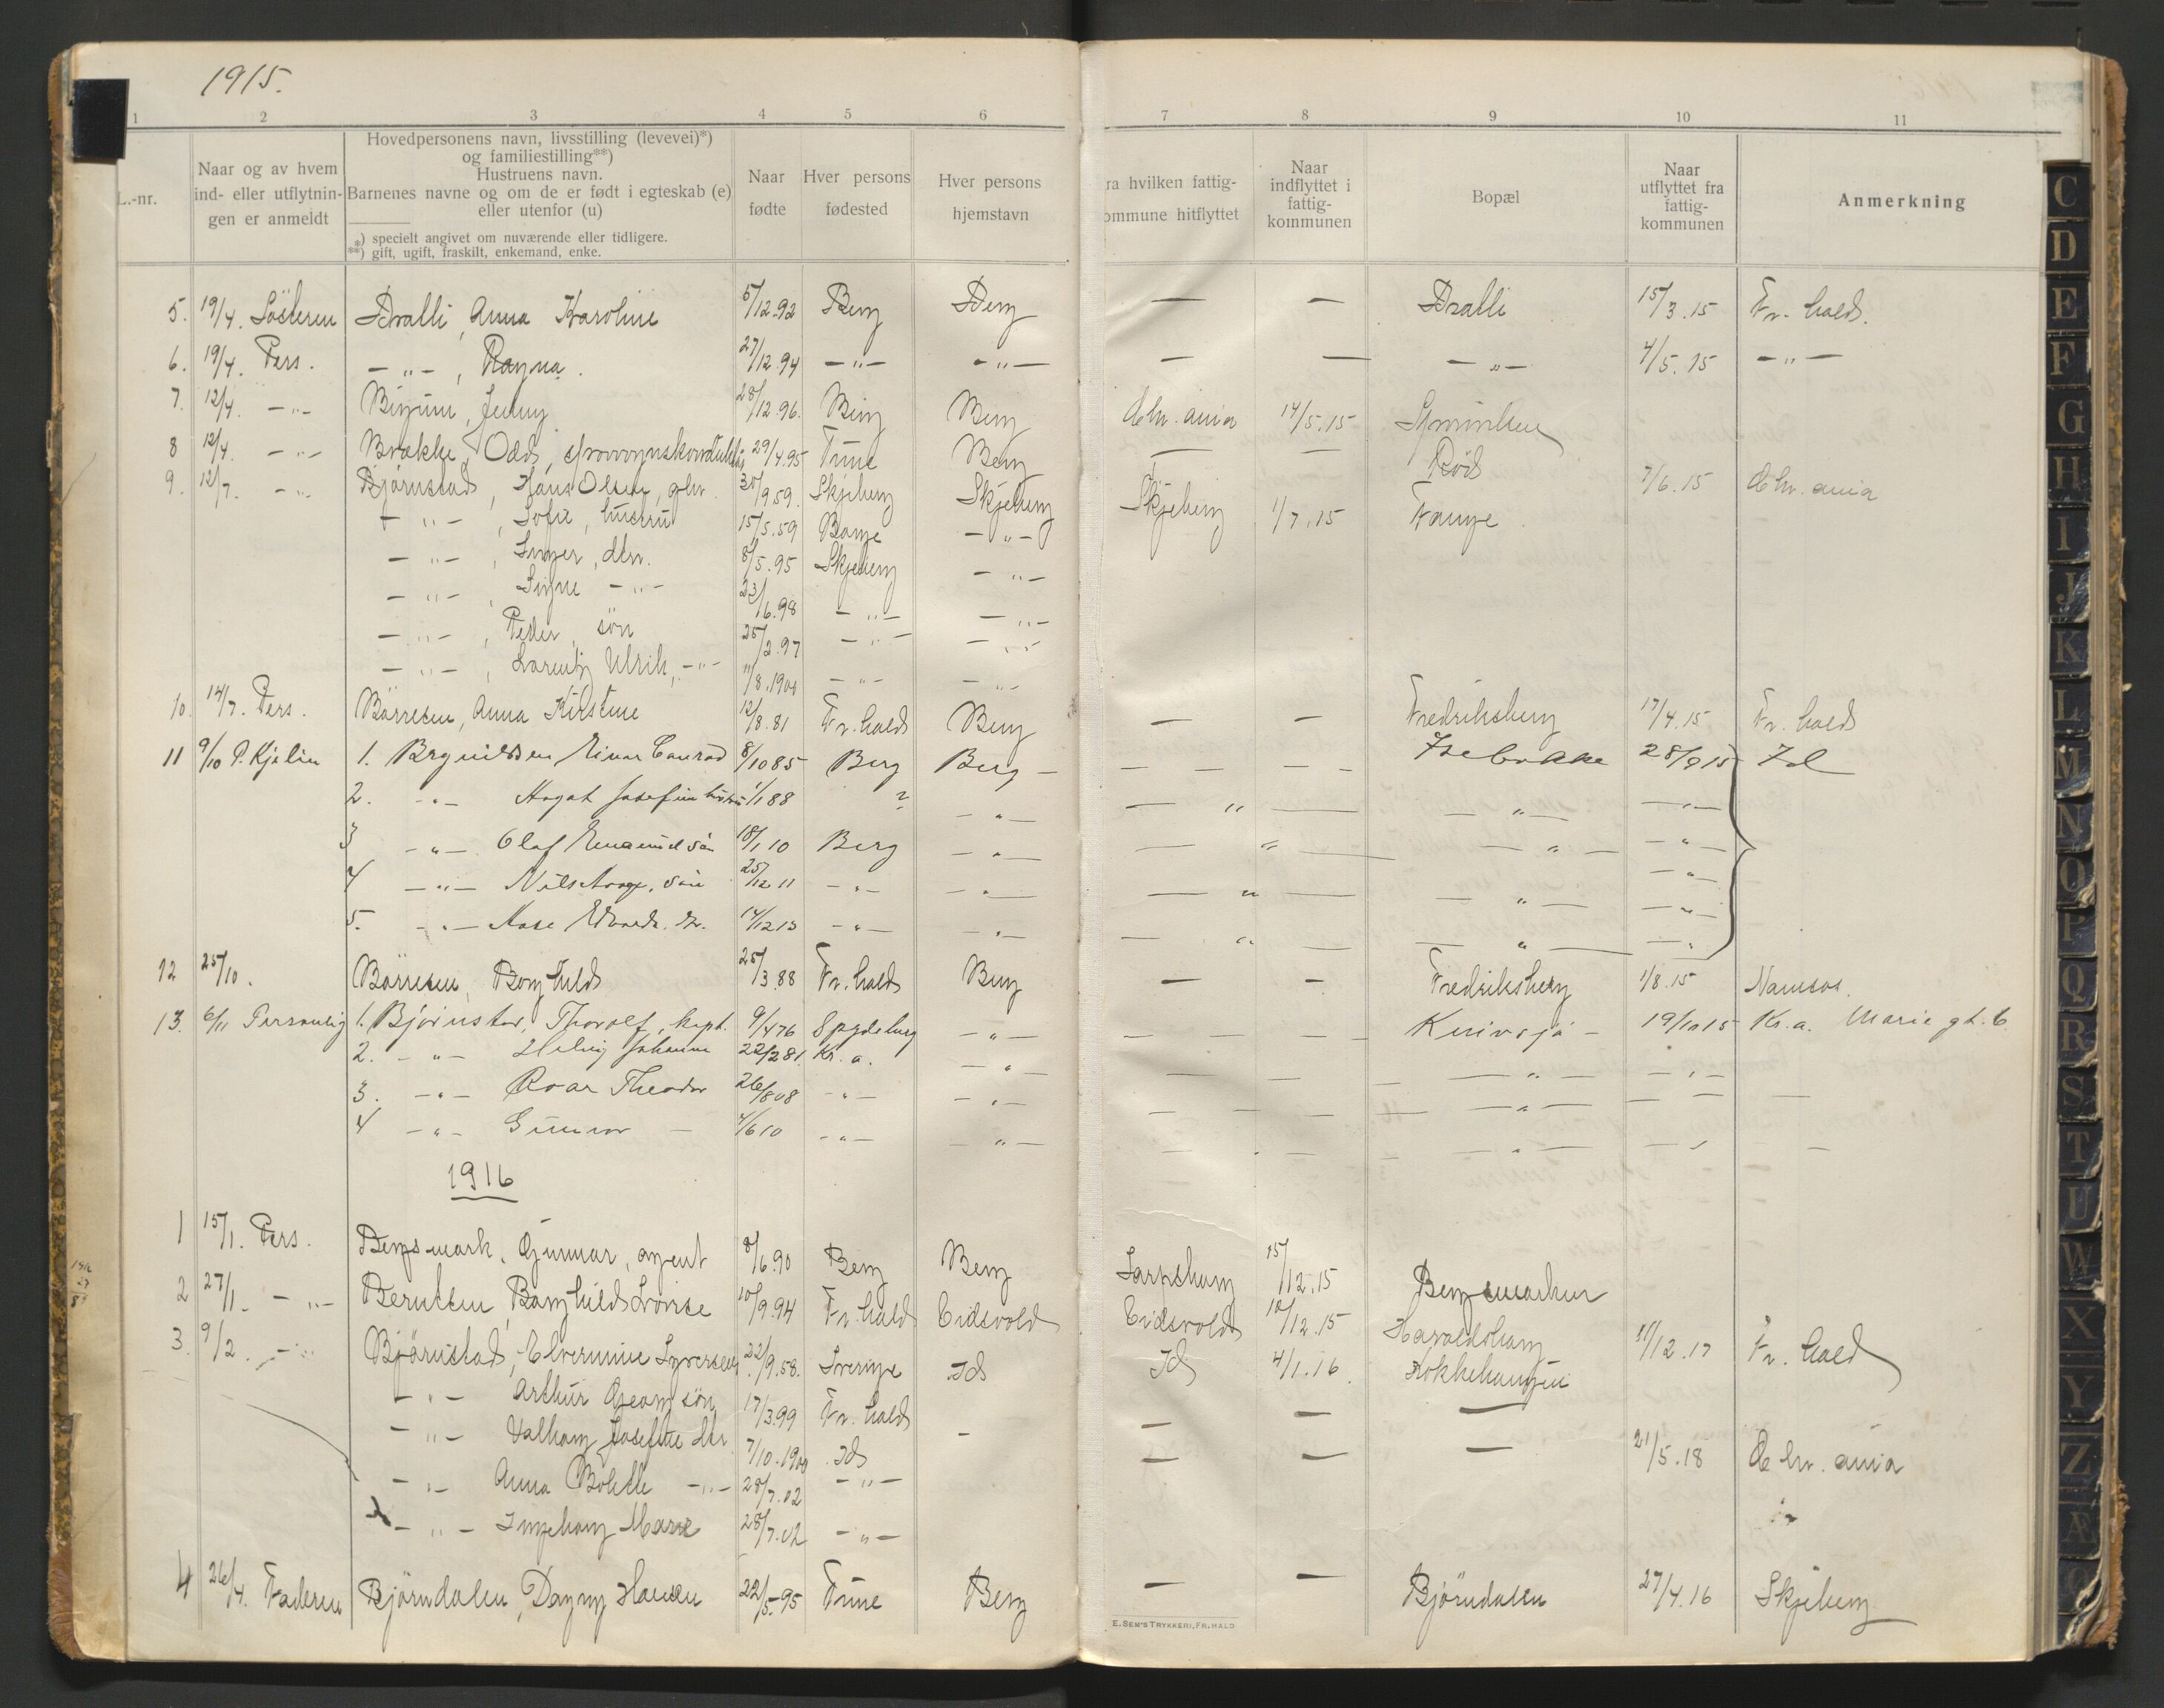 1915.
1 2 3 4 5 6 7 8 9 10 11
L.-nr.
Naar og av hvem
ind- eller utflytnin-
gen er anmeldt
Hovedpersonens navn, livsstilling (levevei)*)
og familiestilling**)
Hustruens navn.
Barnenes navne og om de er født i egteskab (e)
eller utenfor (u)
*) specielt angivet om nuværende eller tidligere.
**) gift, ugift, fraskilt, enkemand, enke.
Naar
fødte
Hver persons
fødested
Hver persons
hjemstavn
ra hvilken fattig-
ommune hitflyttet
Naar
indflyttet i
fattig-
kommunen
Bopæl
Naar
utflyttet fra
fattig-
kommunen
Anmerkning
5. 19/4. Søsteren Bralli, Anna Karoline 5/12.92 Berg Berg — — Bralli 15/3.15 Fr.hald.
6. 19/4. Pers. — " — , Ragna. 27/12.94 — " — — " — — — — " — 4/5.15 — " —
7. 12/4. — " — Jenny 28/12.96. Berg Berg Chr.ania 14/5.15
8 12/4. — " — Brække, Odd, 29/4.95 Tune Berg — — Bød 7/6.15 Chr.ania
9. 12/7. — " — Bjørnstad, Hans Olsen, gbr. 30/9.59. Skjeberg Skjeberg Skjeberg 1/7.15 Tange
— " — , Sofie, hustru 15/5.59 Borge — " —
— " — , Inger, dtr. 8/5.95 Skjeberg — " —
— " — , Signe — " — 23/6.98 — " — — " —
— " — , Peder, søn 25/2.97 — " — — " —
— " — , Lorentz Ulrik, — " — 11/8.1901 — " — — " —
10. 14/7. Pers. Børresen, Anna Kirstine 12/8.81 Fr.hald Berg — — Fredriksberg 17/4.15 Fr.hald
11 9/10 P. Kjølen 1. Brynildsen Einar Conrad 8/10 85 Berg Berg — — — — Isebakke 28/9 15 Id
2. — " — Aagot Josefine hustru 1/1 88 ? — " — — " — — " — — " —
3 — " — Olaf Emanuel søn 18/1 10 Berg — " — — " — — " — — " —
4 — " — Nils Aage, søn 25/12 11 — " — — " — — " — — " — — " —
5. — " — Aase Edvarda. dr. 14/12 13 — " — — " — — " — — " — — " —
12 25/10. Børresen, Borghild 25/3.88 Fr.hald Berg — — Fredriksberg 1/8.15 Namsos.
13. 6/11 Personlig 1. Bjørnstad, Thorolf, kapt. 9/4 76 Spydeberg — " — — — — Knivsjø — 19/10 15 Kr.a. Marie gt. 6
2. — " — Helvig Johanne 22/2 81 Kr.a. — " — — — — " — — " —
3. — " — Roar Theodor 26/8 08 — " — — " — — — — " — — — —
4 — " — Gunvor — 4/6 10 — " — — " — — " — — " — —
1916
1 15/1. Pers. Bergsmark, Gunnar, agent 8/6.90 Berg Berg Sarpsborg 15/12.15 Bergsmarken
2 27/1. — " — Berntsen, Borghild Lovise 10/9.94 Fr.hald Eidsvold Eidsvold 10/12.15 Haraldsborg 11/12.17 Fr.hald
3. 9/2. — " — Bjørnstad, Elvermine Syversen 22/9.58. Sverige Id Id 4/1.16. Kokkehaugen
— " — Arthur Georg søn 17/3.99 Fr.hald — — —
— " — Valborg Josefine dtr. 7/10.1900 Id — — — — 21/5.18 Chr.ania
— " — Anna Bolette — " — 28/7.02 — " —
— " — Ingeborg Marie 28/7.02 — " —
4 26/4. Faderen Bjørndalen, Dagny Hansen 22/5.95 Tune Berg — — Bjørndalen 27/4.16 Skjeberg
E. SEM'S TRYKKERI, FR.HALD
C
D
E
F
G
H
I
J
K
L
M
N
O
P
Q
R
S
T
U
W
X
Y
Z
Æ
Ø